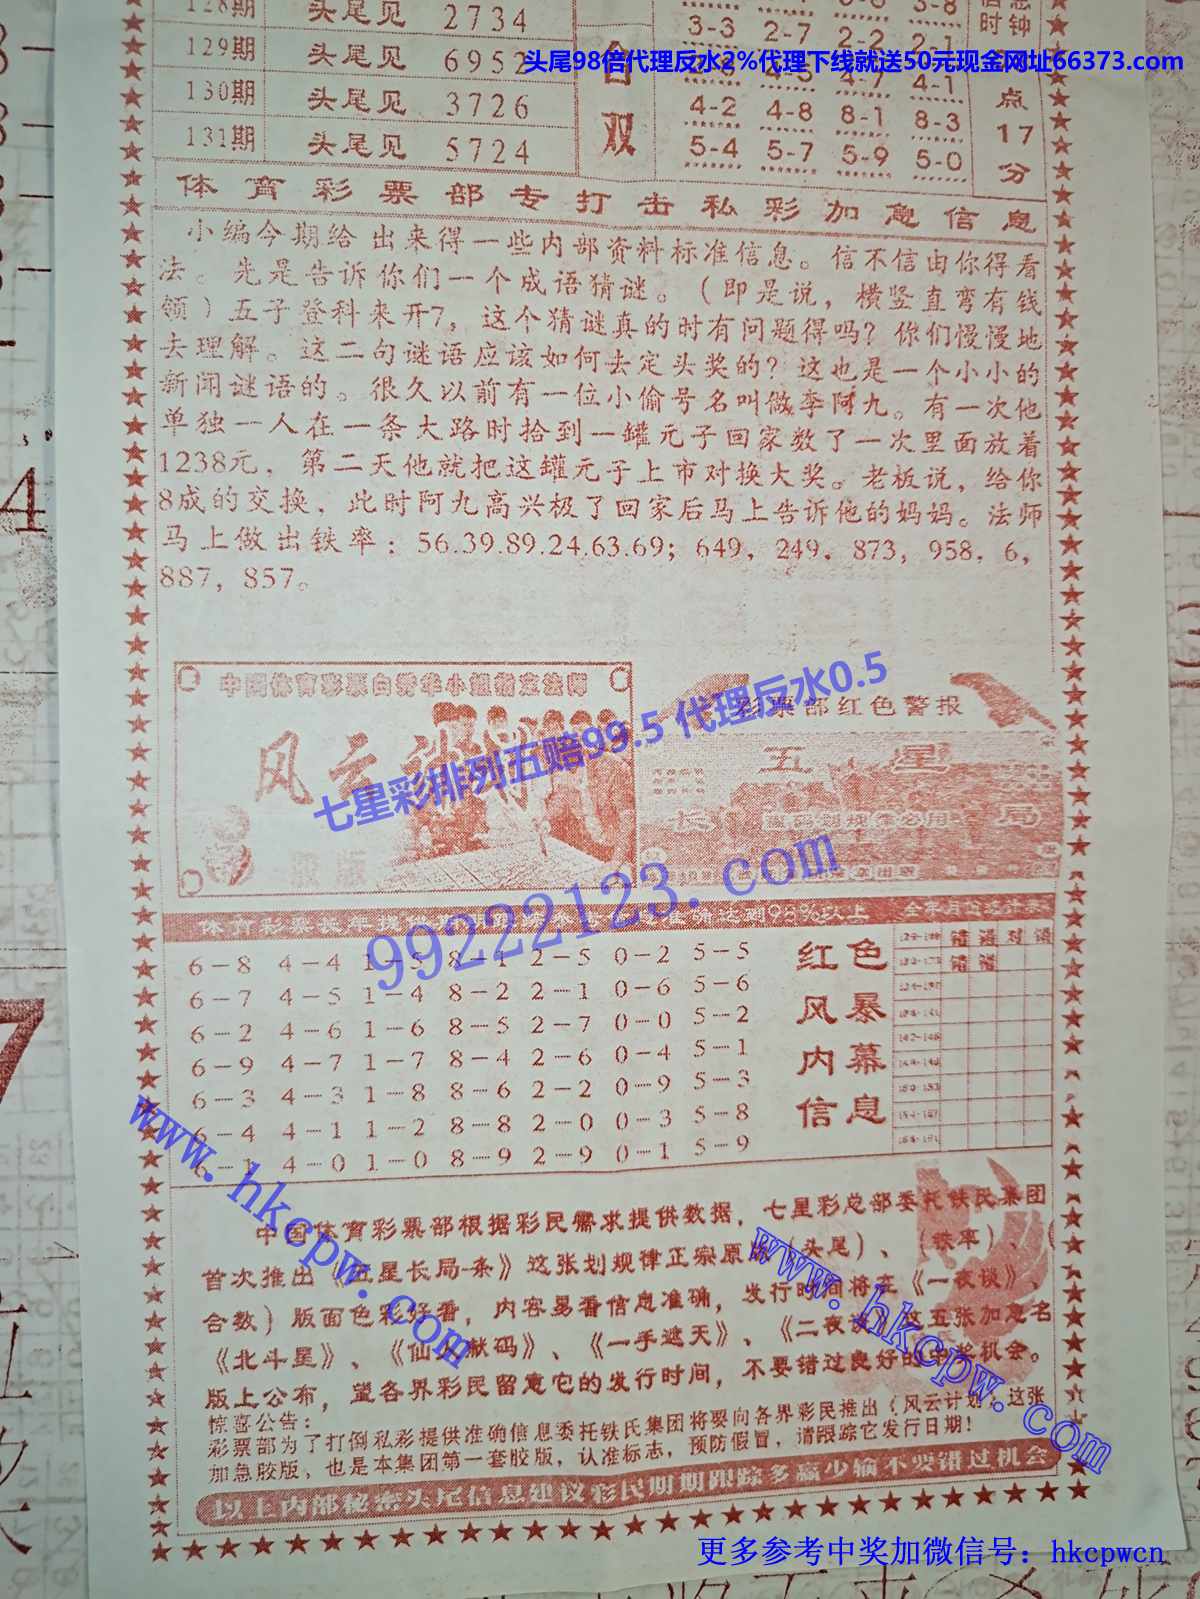 128期 头尾见 2734
129期 头尾见 6952
130期 头尾见 3726
131期 头尾见 5724
合双
3-3 2-7 2-2 2-1
4-2 4-8 8-1 8-3
5-4 5-7 5-9 5-0
点17分
头尾98倍代理反水2%代理下线就送50元现金网址66373.com
体育彩票部专打击私彩加急信息
小编今期给出来得一些内部资料标准信息。信不信由你得看
法。先是告诉你们一个成语猜谜。（即是说，横竖直弯有钱
领）五子登科来开7，这个猜谜真的时有问题得吗？你们慢慢地
去理解。这二句谜语应该如何去定头奖的？这也是一个小小的
新闻谜语的。很久以前有一位小偷号名叫做李阿九。有一次他
单独一人在一条大路时拾到一罐元子回家数了一次里面放着
1238元，第二天他就把这罐元子上市对换大奖。老板说，给你
8成的交换，此时阿九高兴极了回家后马上告诉他的妈妈。法师
马上做出铁率：56.39.89.24.63.69；649，249．873，958．6，
887，857。
中国体育彩票白秀华小姐指定法师
风云
胶版
彩票部红色警报
五星
长
局
七星彩排列五赔99.5 代理反水0.5
99222123.com
6-8 4-4 1-5 8-1 2-5 0-2 5-5
6-7 4-5 1-4 8-2 2-1 0-6 5-6
6-2 4-6 1-6 8-5 2-7 0-0 5-2
6-9 4-7 1-7 8-4 2-6 0-4 5-1
6-3 4-3 1-8 8-6 2-2 0-9 5-3
6-4 4-1 1-2 8-8 2-0 0-3 5-8
6-1 4-0 1-0 8-9 2-9 0-1 5-9
红色
风暴
内幕
信息
错 错 对 错
错 错
www.hkcpw.com
www.hkcpw.com
中国体育彩票部根据彩民需求提供数据，七星彩总部委托铁民集团
首次推出《五星长局-条》这张划规律正宗原版（头尾）、（铁率）、
合数）版面色彩好看，内容易看信息准确，发行时间将在《一夜谈》、
《北斗星》、《仙 献码》、《一手遮天》、《二夜谈 这五张加急名
版上公布，望各界彩民留意它的发行时间，不要错过良好的中奖机会。
惊喜公告：
彩票部为了打倒私彩提供准确信息委托铁氏集团将要向各界彩民推出（风云计划）这张
加急胶版，也是本集团第一套胶版，认准标志，预防假冒，请跟踪它发行日期！
以上内部秘密头尾信息建议彩民期期跟踪多赢少输不要错过机会
更多参考中奖加微信号：hkcpwcn